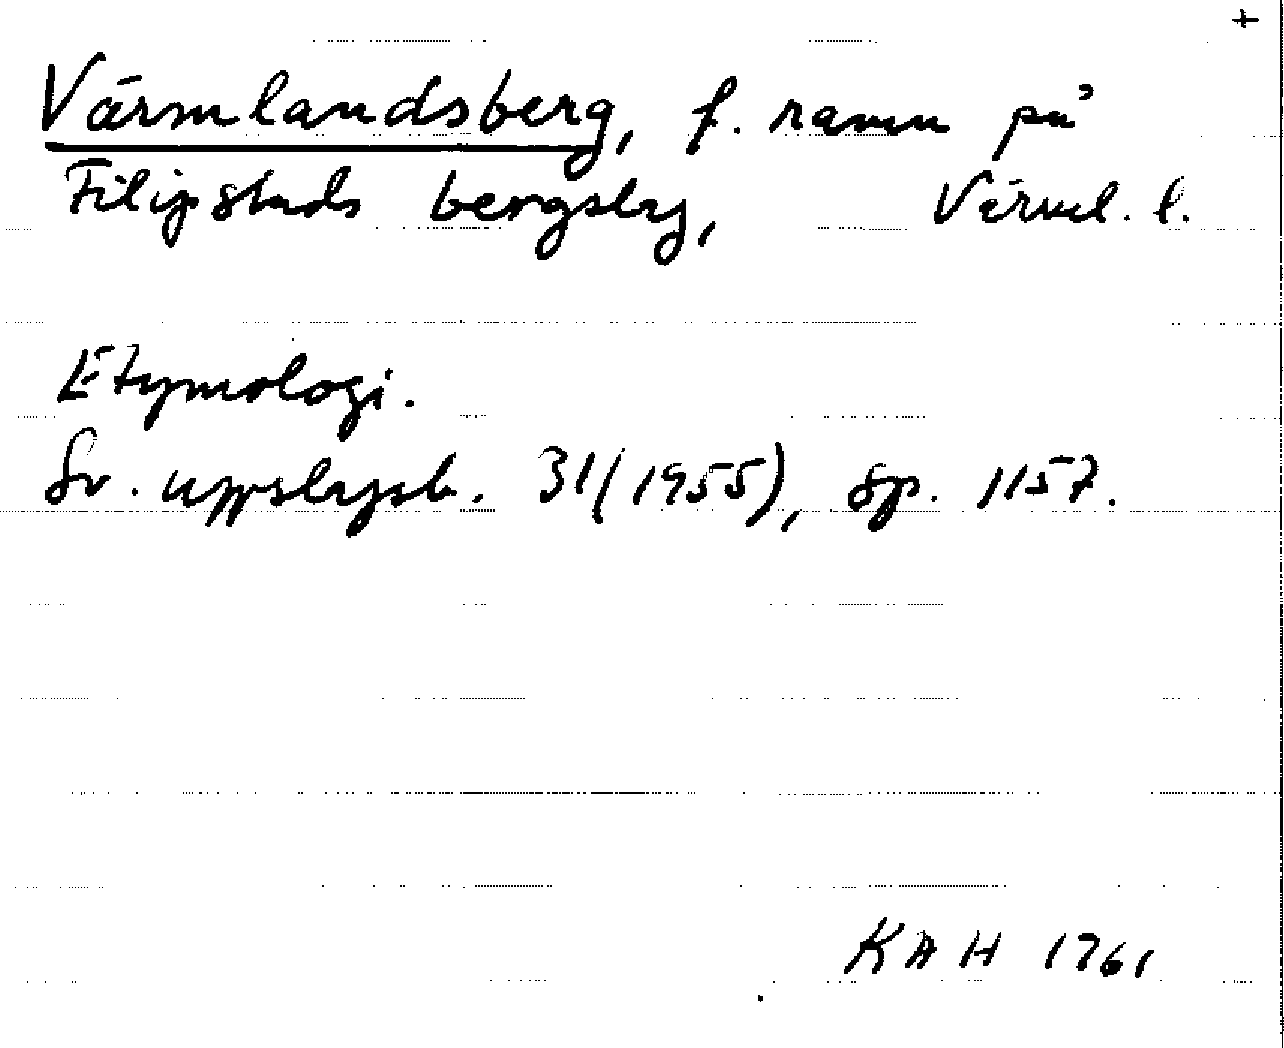 +
Värmlandsberg, f. namn på
Filipstads bergslag, Värml. l.
Etymologi.
Sv. uppslagsb. 31(1955), sp. 1157.
KAH 1761